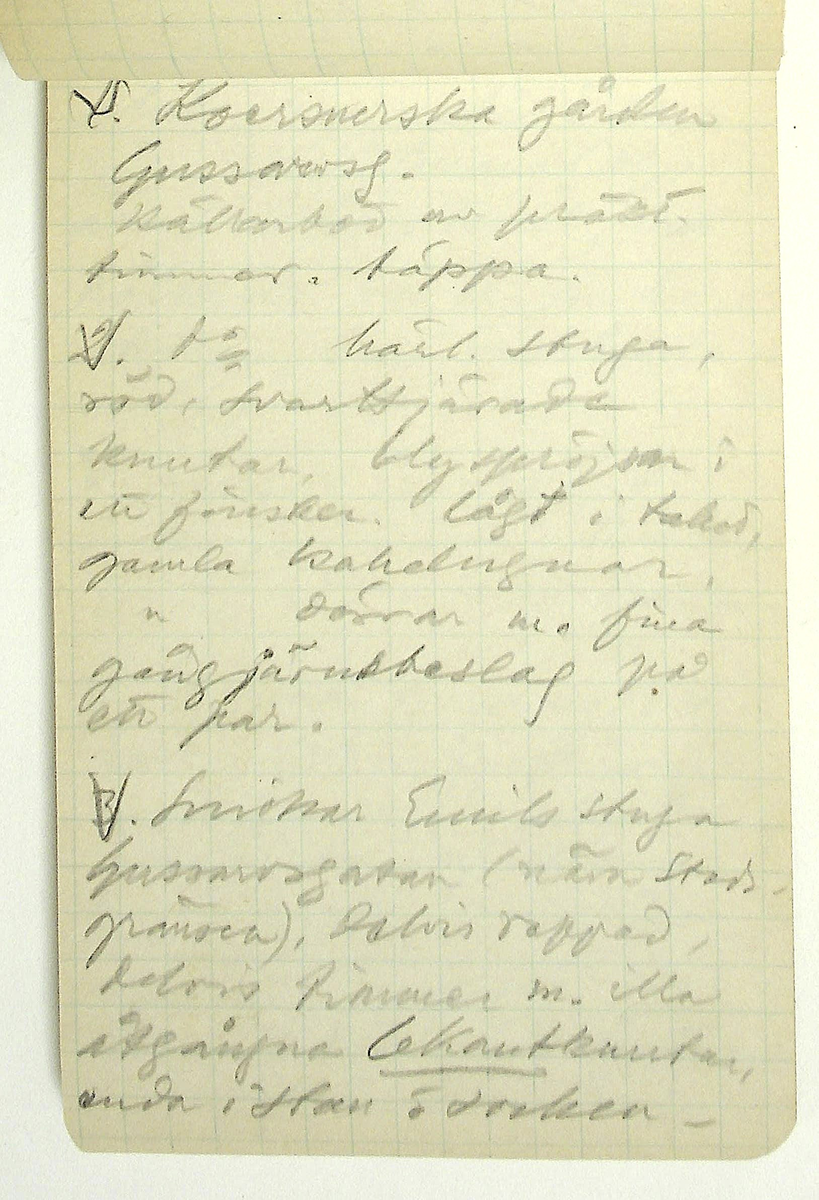 1. Koersnerska gården
Gussarvsg.
Källarbod av präkt.
timmer. täppa.
2. do härl. stuga,
röd, svarttjärade
knutar, blyspröjsar i
ett fönster. lågt i taket,
gamla kakelugnar,
" dörrar m. fina
gångjärnsbeslag på
ett par.
3. Smickar Emils stuga
Gussarvsgatan (nära Stads-
gränsen), delvis rappad,
delvis timmer m. illa
åtgångna 6kantknutar,
enda i stan o socken –